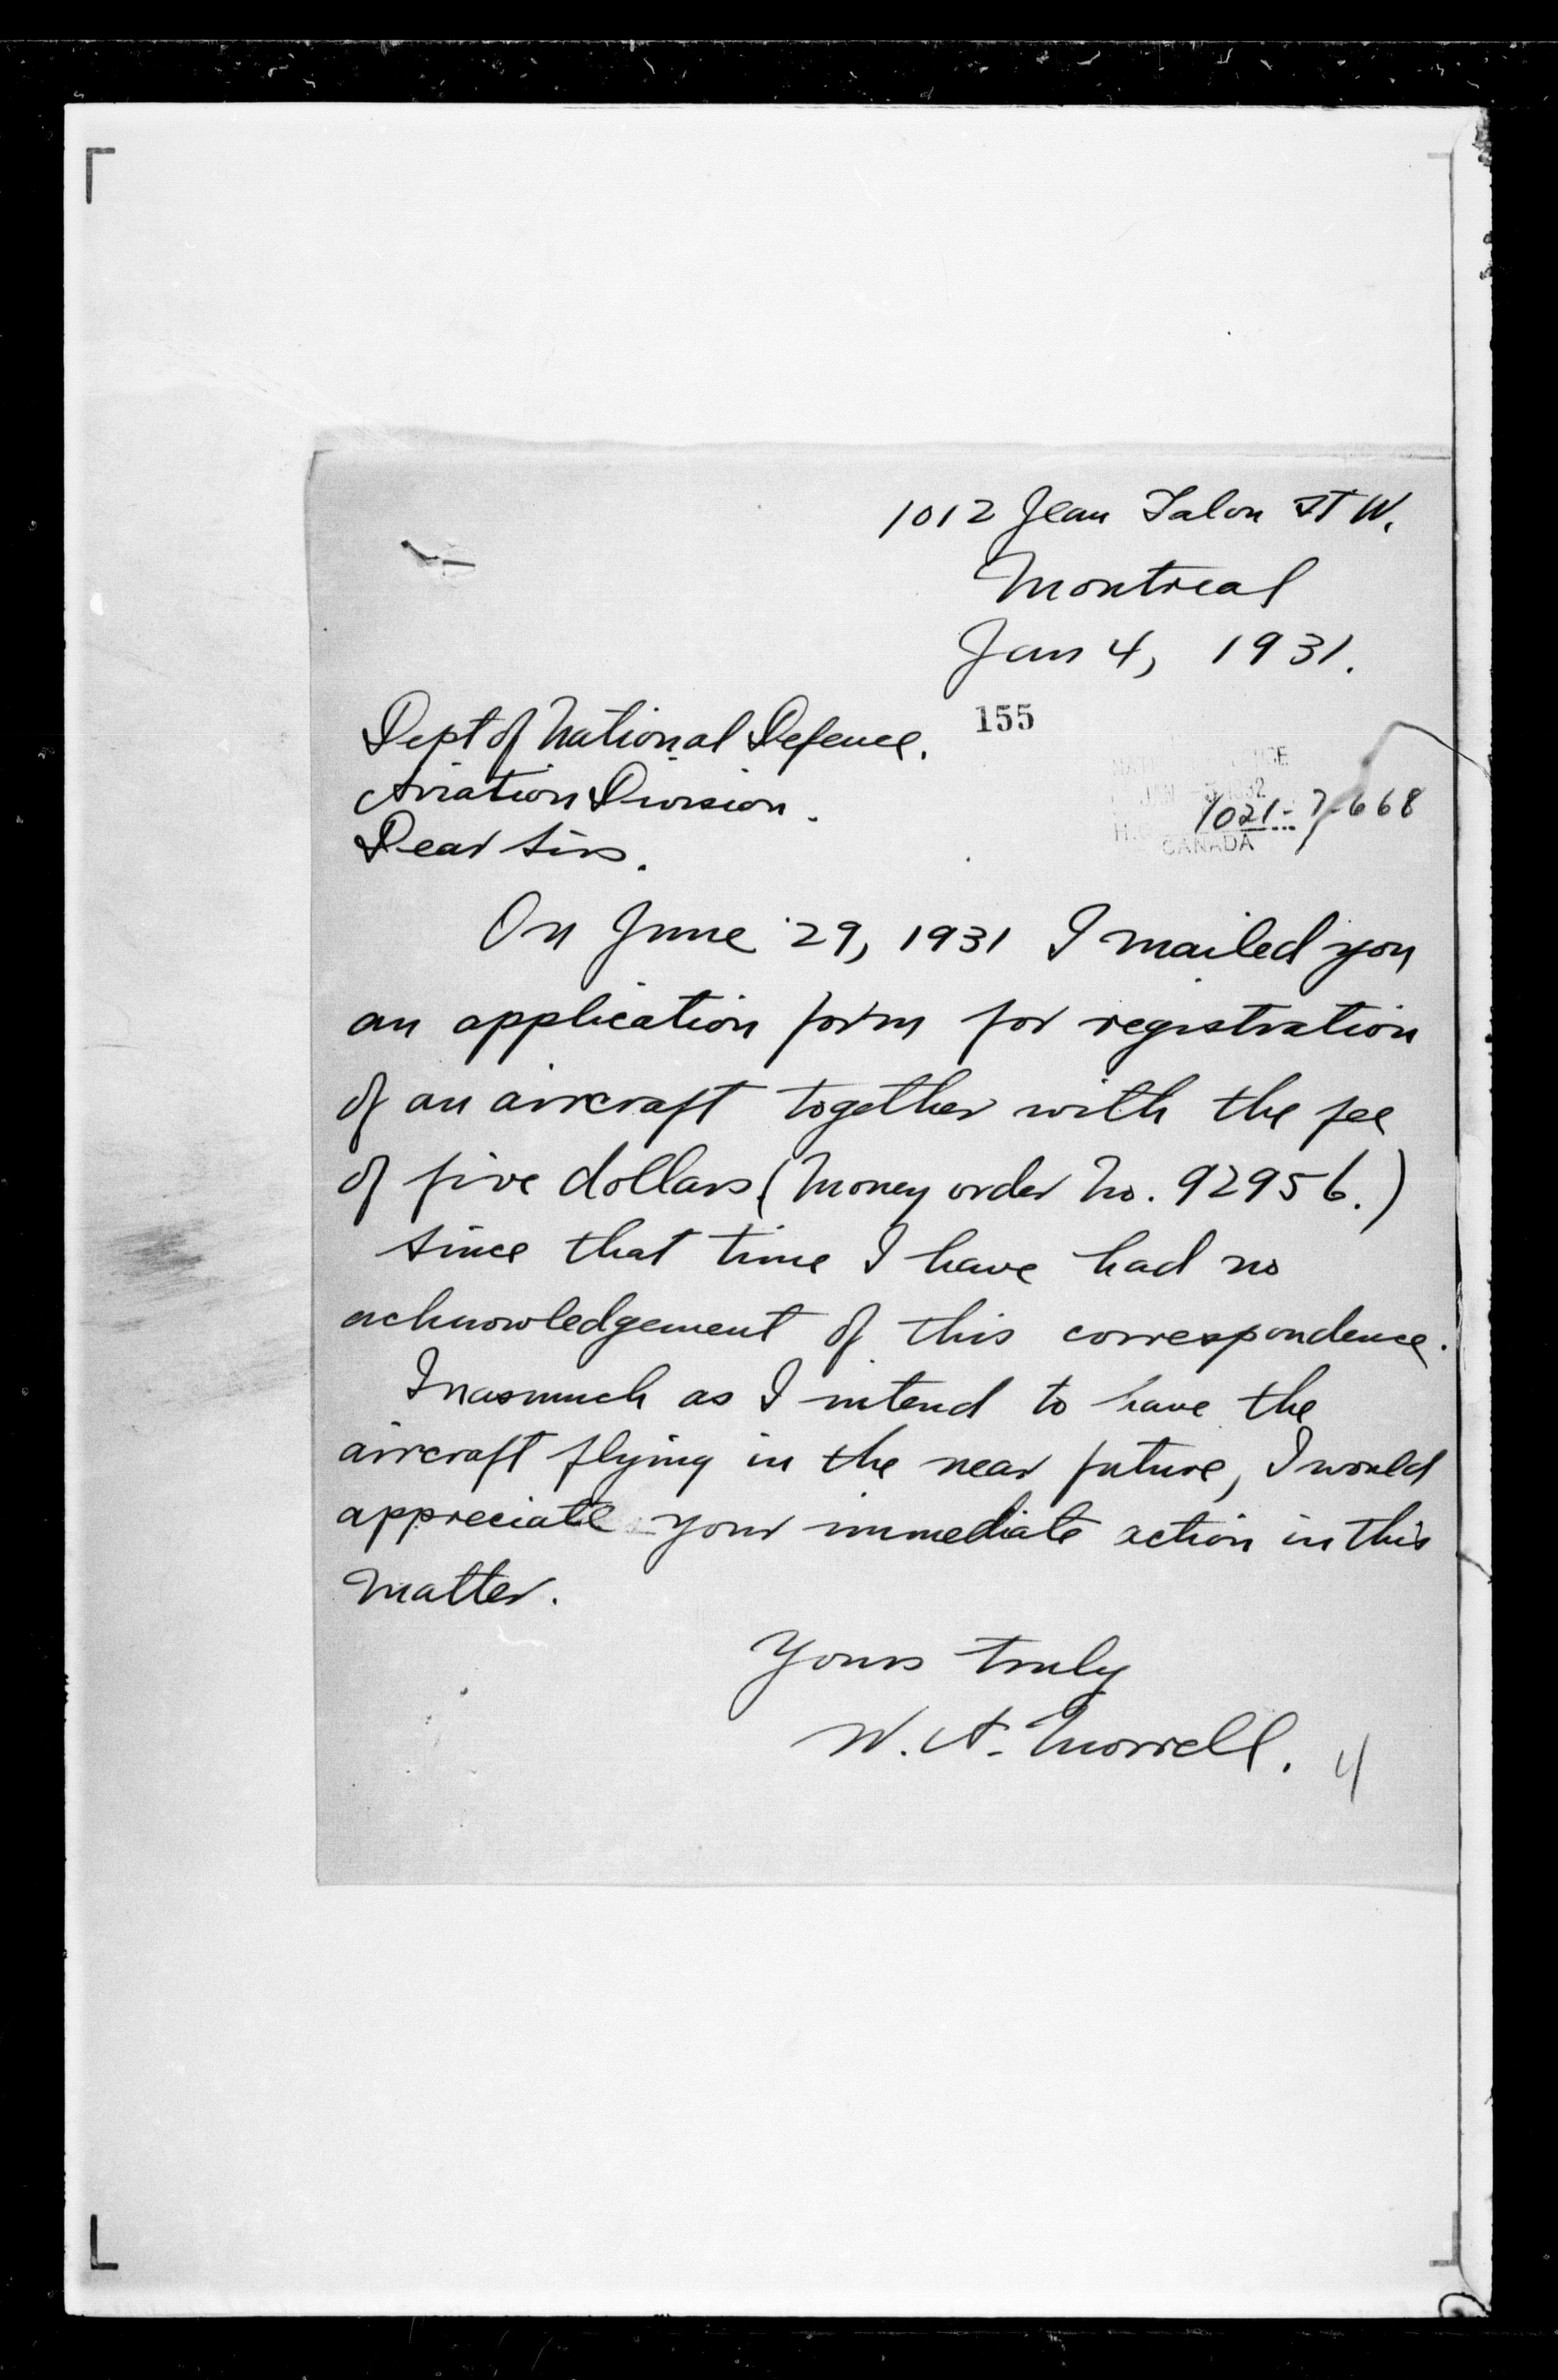 1012 Jean Talon ST W.
Montreal
Jan 4, 1931.
155
Dept of National Defence.
Aviation Division.
Dear Sirs.
1021-7-668
CANADA
On June 29, 1931 I mailed you
an application form for registration
of an aircraft together with the fee
of five dollars (Money order No. 92956.)
Since that time I have had no
acknowledgement of this correspondence.
Inasmuch as I intend to have the
aircraft flying in the near future, I would
appreciate your immediate action in this
matter.
Yours truly
W. A. Morrell.
4